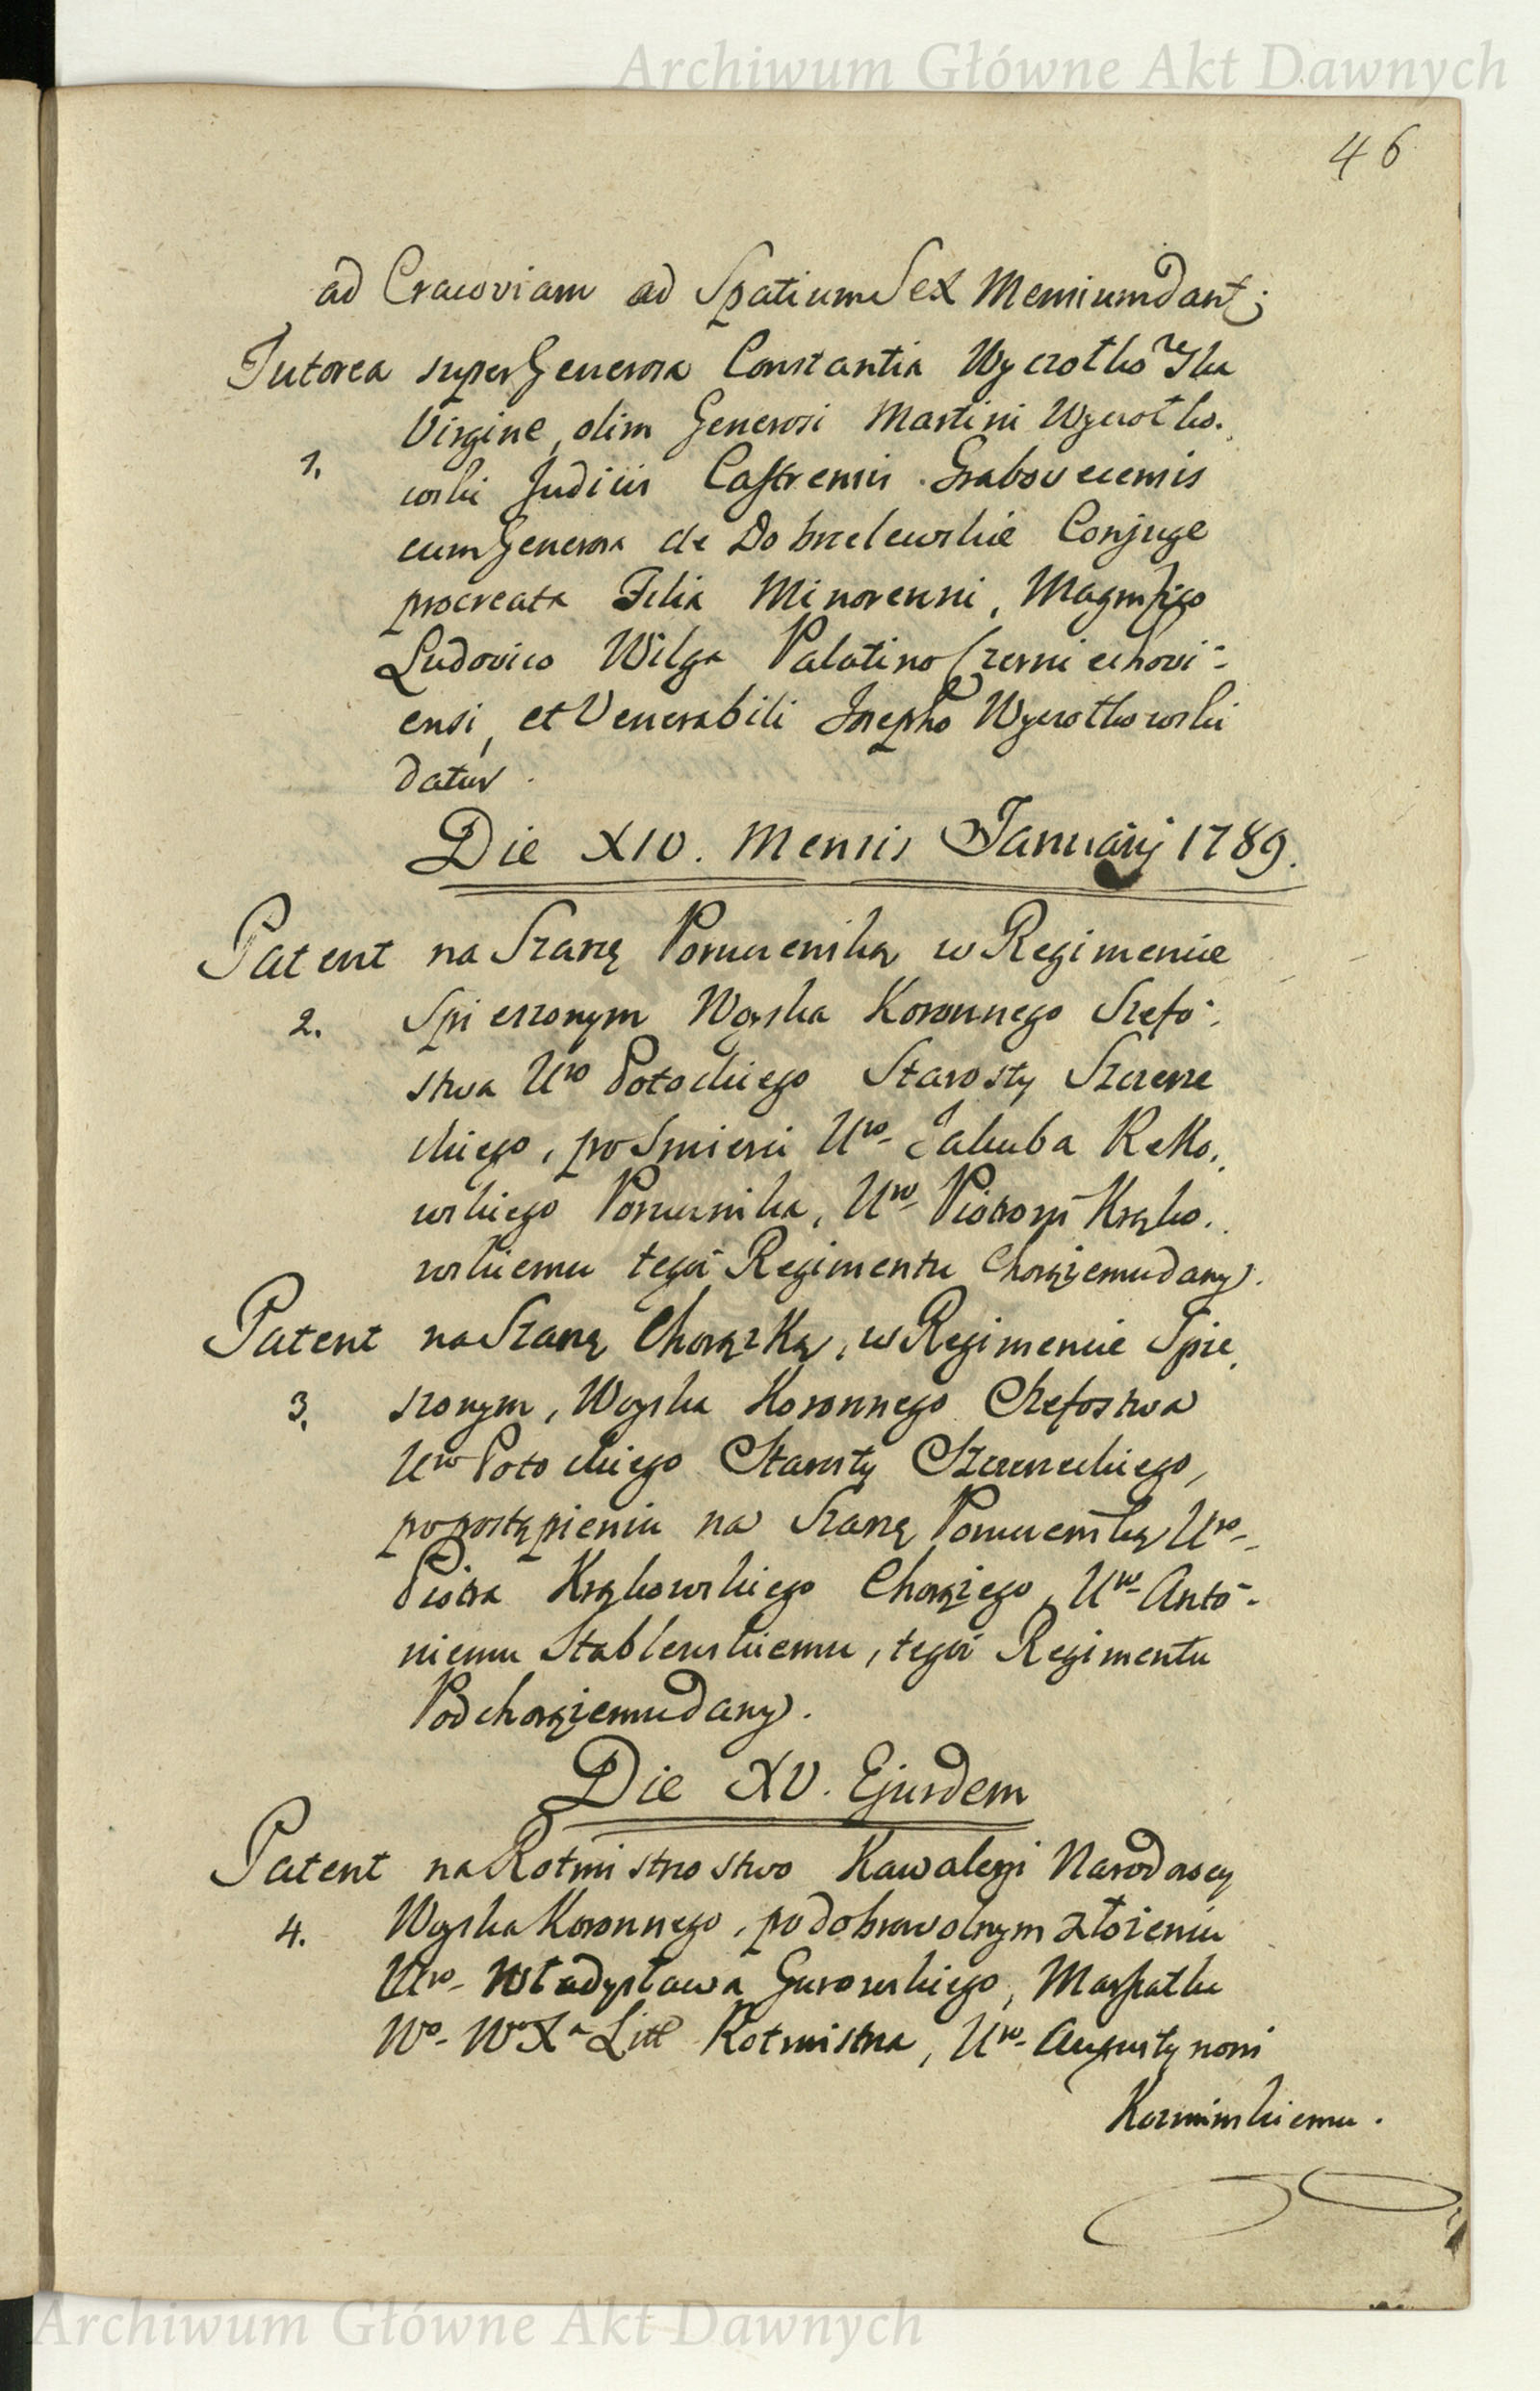 Archiwum Główne Akt Dawnych
46
ad Cracoviam ad Spatium Sex Mensium dant;
Tutorea super Generosa Constantia Wyczołkowska
Virgine, olim Generosi Martini Wyczołko-
1.
wski Judicis Castrensis Grabovecensis
cum Generosa de Dobrzelewskie Conjuge
procreata Filia Minorenni, Magnifico
Ludovico Wilga Palatino Czerniechovi-
ensi, et Venerabili Josepho Wyczołkowski
datur.
Die XIV. Mensis Januarij 1789.
Patent na Szarżę Poruczniką w Regimencie
2. Spieszonym Woyska Koronnego Szefo-
stwa Uro Potockiego Starosty Szczerze
ckiego, po Smierci Uro- Jakuba Reko-
wskiego Porucznika, Uro- Piotrowi Krąko-
wskiemu tegoż Regimentu Chorążemu dany.
Patent na Szarżę Chorązką, w Regimencie Spie-
3. szonym, Woyska Koronnego Szefostwa
Uro Potockiego Starosty Szczerzeckiego,
po postąpieniu na Szarżę Poruczniką Uro-
Piotra Krąkowskiego Chorążego, Uro- Anto-
niemu Stablewskiemu, tegoż Regimentu
Podchorążemu dany.
Die XV. Ejusdem
Patent na Rotmistrzostwo Kawaleryi Narodowey
4. Woyska Koronnego, po dobrowolnym złożeniu
Uro- Władysława Gurowskiego, Marszałka
Wo- Wo Xa Litt Rotmistrza, Uro- Augustynowi
Kozminskiemu.
Archiwum Główne Akt Dawnych